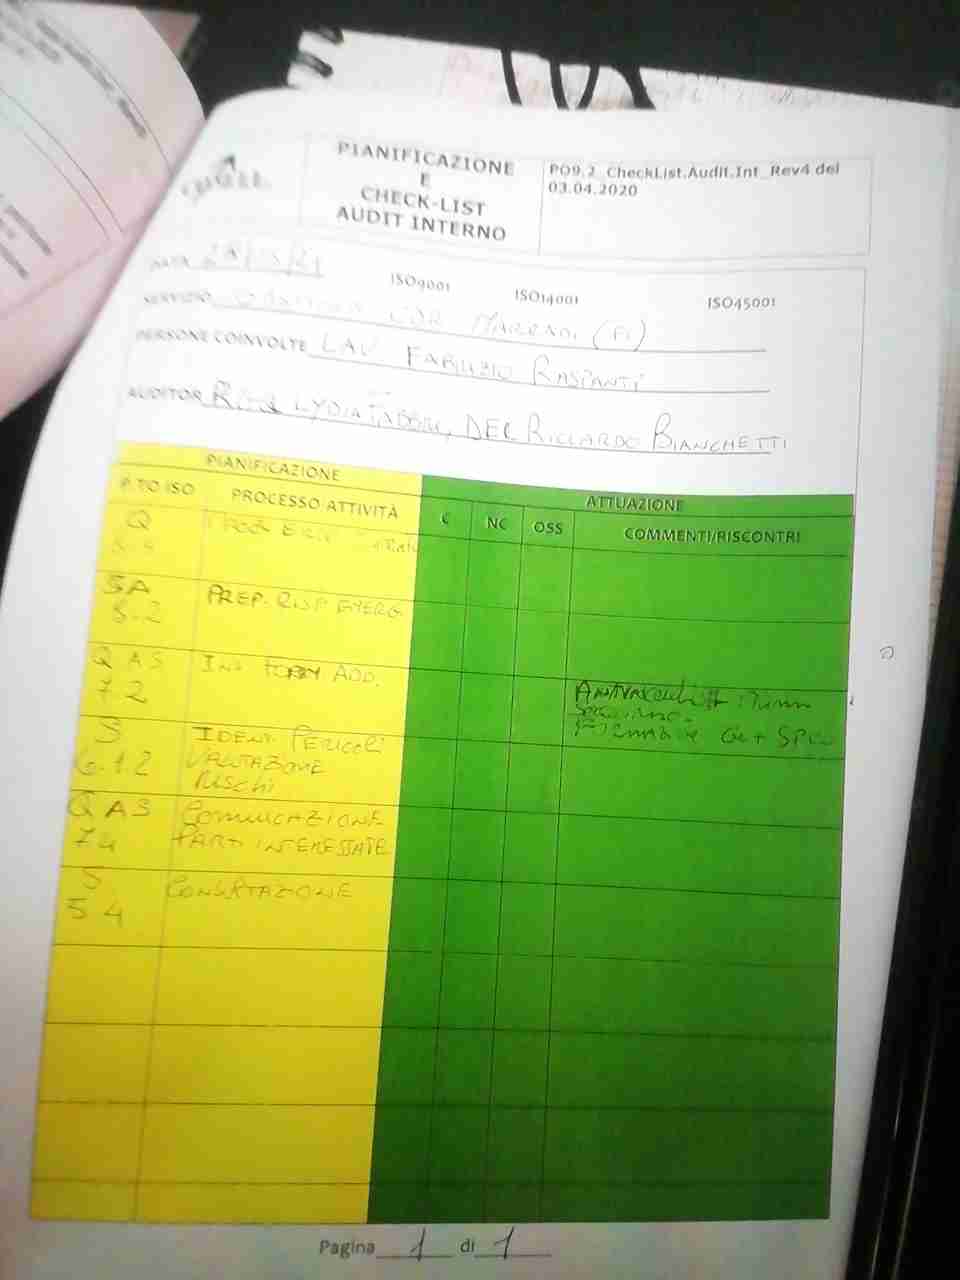 PIANIFICAZIONE
E
CHECK-LIST
AUDIT INTERNO
PO9.2_CheckList.Audit.Int_Rev4 del
03.04.2020
DATA
ISO9001 ISO14001 ISO45001
SERVIZIO MARRADI (FI)
PERSONE COINVOLTE LAV FABRIZIO RASPANTI
AUDITOR LYDIA FABBRI, DEC RICCARDO BIANCHETTI
PIANIFICAZIONE ATTUAZIONE
P.TO ISO PROCESSO ATTIVITÀ C NC OSS COMMENTI/RISCONTRI
Q
SA PREP. RISP. EMERG.
8.2
Q A S INF FORM ADD.
7.2
S IDENT. PERICOLI
6.1.2 VALUTAZIONE
RISCHI
Q A S COMUNICAZIONE
7.4 PARTI INTERESSATE
S CONSULTAZIONE
5 4
Pagina 1 di 1